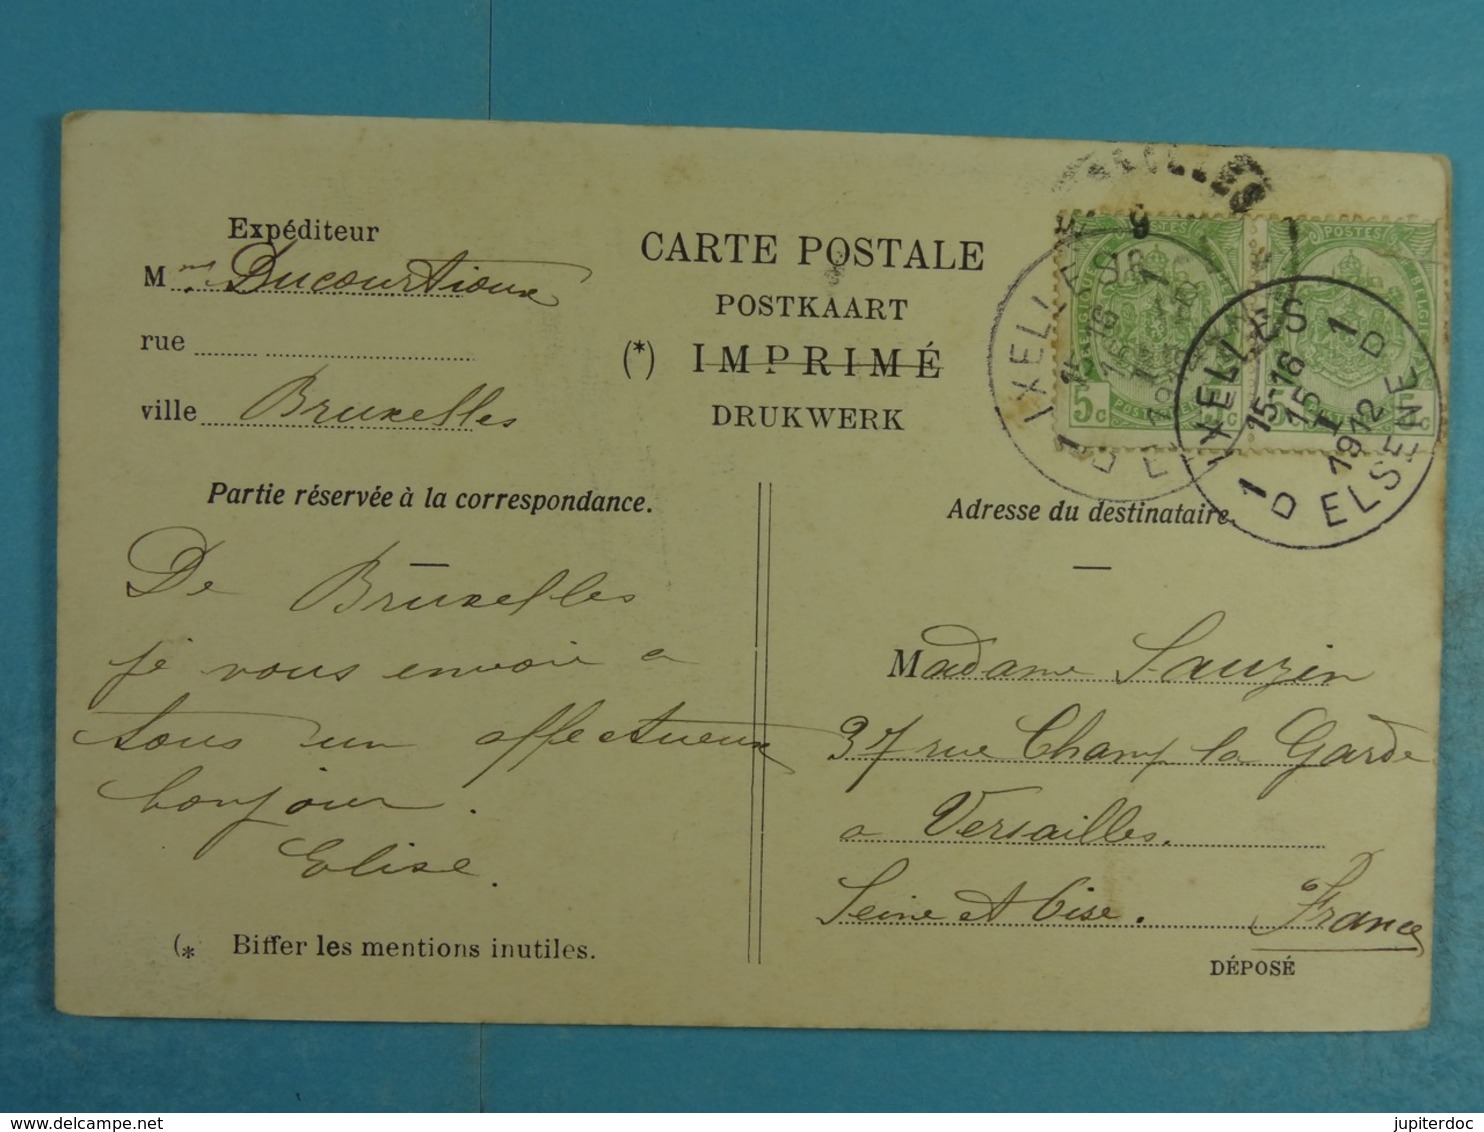 Expéditeur
Mme Ducourtioux
rue
ville Bruxelles
CARTE POSTALE
POSTKAART
(*) IMPRIMÉ
DRUKWERK
Partie réservée à la correspondance.
De Bruxelles
je vous envoie a
tous un affectueux
bonjour.
Elise.
(* Biffer les mentions inutiles.
POSTES
5c
IXELLES
15-16
1 D
POSTES
BELGIE
IXELLES 1 D
15-16
15
I
1912
1 D ELSENE
Adresse du destinataire.
Madame Sauzin
37 rue Champ la Garde
a Versailles.
Seine et Oise. France
DÉPOSÉ
delcampe.net
jupiterdoc